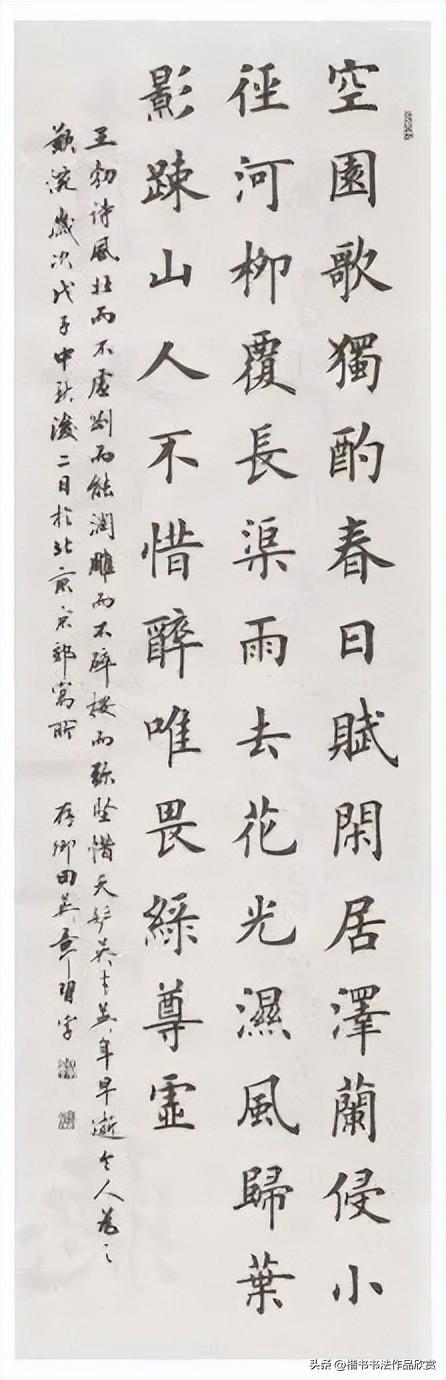 空園歌獨酌春日賦閑居澤蘭侵小
徑河柳覆長渠雨去花光濕風歸葉
影疎山人不惜醉唯畏綠尊虛
王勃詩風壯而不虛剛而能潤雕而不碎按而彌堅惜天妒英才英年早逝令人為之
歎惋歲次戊子中秋後二日於北京京郊寓所 存卿田英章習字
头条 @楷书书法作品欣赏